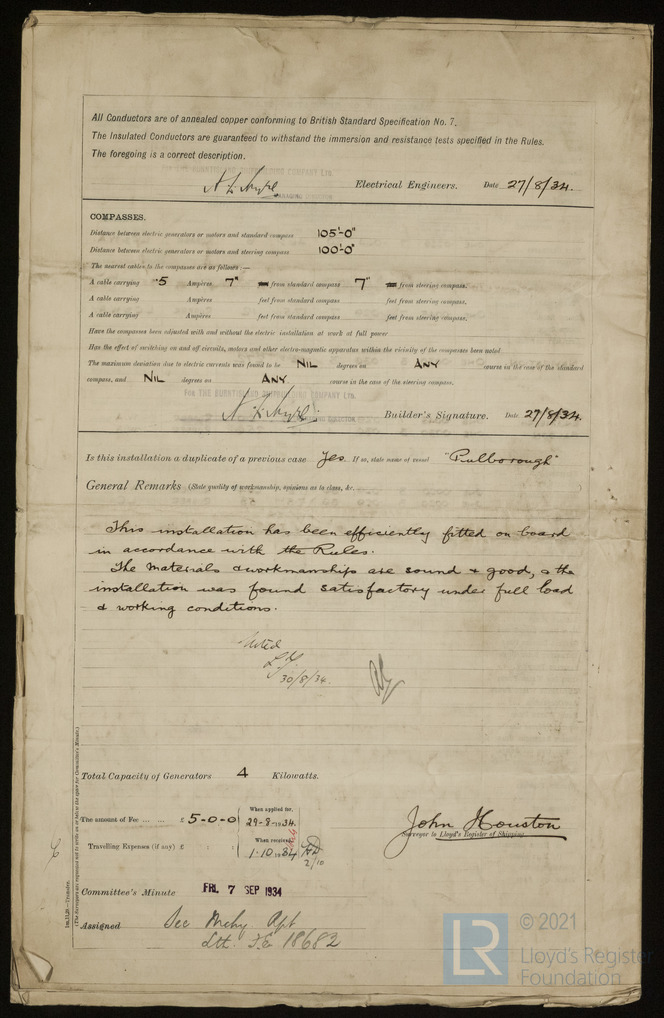 All Conductors are of annealed copper conforming to British Standard Specification No. 7.
The Insulated Conductors are guaranteed to withstand the immersion and resistance tests specified in the Rules.
The foregoing is a correct description.
Electrical Engineers. Date 27/8/34.
COMPASSES.
Distance between electric generators or motors and standard compass 105'-0"
Distance between electric generators or motors and steering compass 100'-0"
The nearest cables to the compasses are as follows:—
A cable carrying .5 Ampères 7" from standard compass 7" from steering compass.
A cable carrying Ampères feet from standard compass feet from steering compass.
A cable carrying Ampères feet from standard compass feet from steering compass.
Have the compasses been adjusted with and without the electric installation at work at full power
Has the effect of switching on and off circuits, motors and other electro-magnetic apparatus within the vicinity of the compasses been noted
The maximum deviation due to electric currents was found to be NIL degrees on ANY course in the case of the standard
compass, and NIL degrees on ANY course in the case of the steering compass.
For THE BURNTISLAND SHIPBUILDING COMPANY Ltd.
Builder's Signature. Date 27/8/34.
Is this installation a duplicate of a previous case Yes If so, state name of vessel "Pulborough"
General Remarks (State quality of workmanship, opinions as to class, &c.)
This installation has been efficiently fitted on board
in accordance with the Rules.
The materials & workmanships are sound & good, & the
installation was found satisfactory under full load
& working conditions.
Noted
30/8/34.
Total Capacity of Generators 4 Kilowatts.
The amount of Fee ... ... £ 5-0-0
When applied for,
29-8-1934.
Travelling Expenses (if any) £ : :
When received,
1.10.1934
2/10
John Houston
Surveyor to Lloyd's Register of Shipping.
Committee's Minute FRI. 7 SEP 1934
Assigned See Mchy Rpt
Lth. J.E. 18682
(The Surveyors are requested not to write on or below the space for Committee's Minute.)
© 2021
LR
Lloyd's Register
Foundation